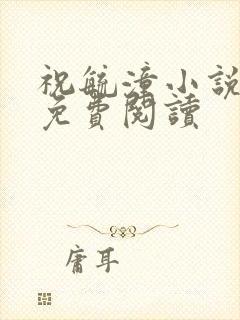 祝毓潼小說
免費閱讀
庸耳